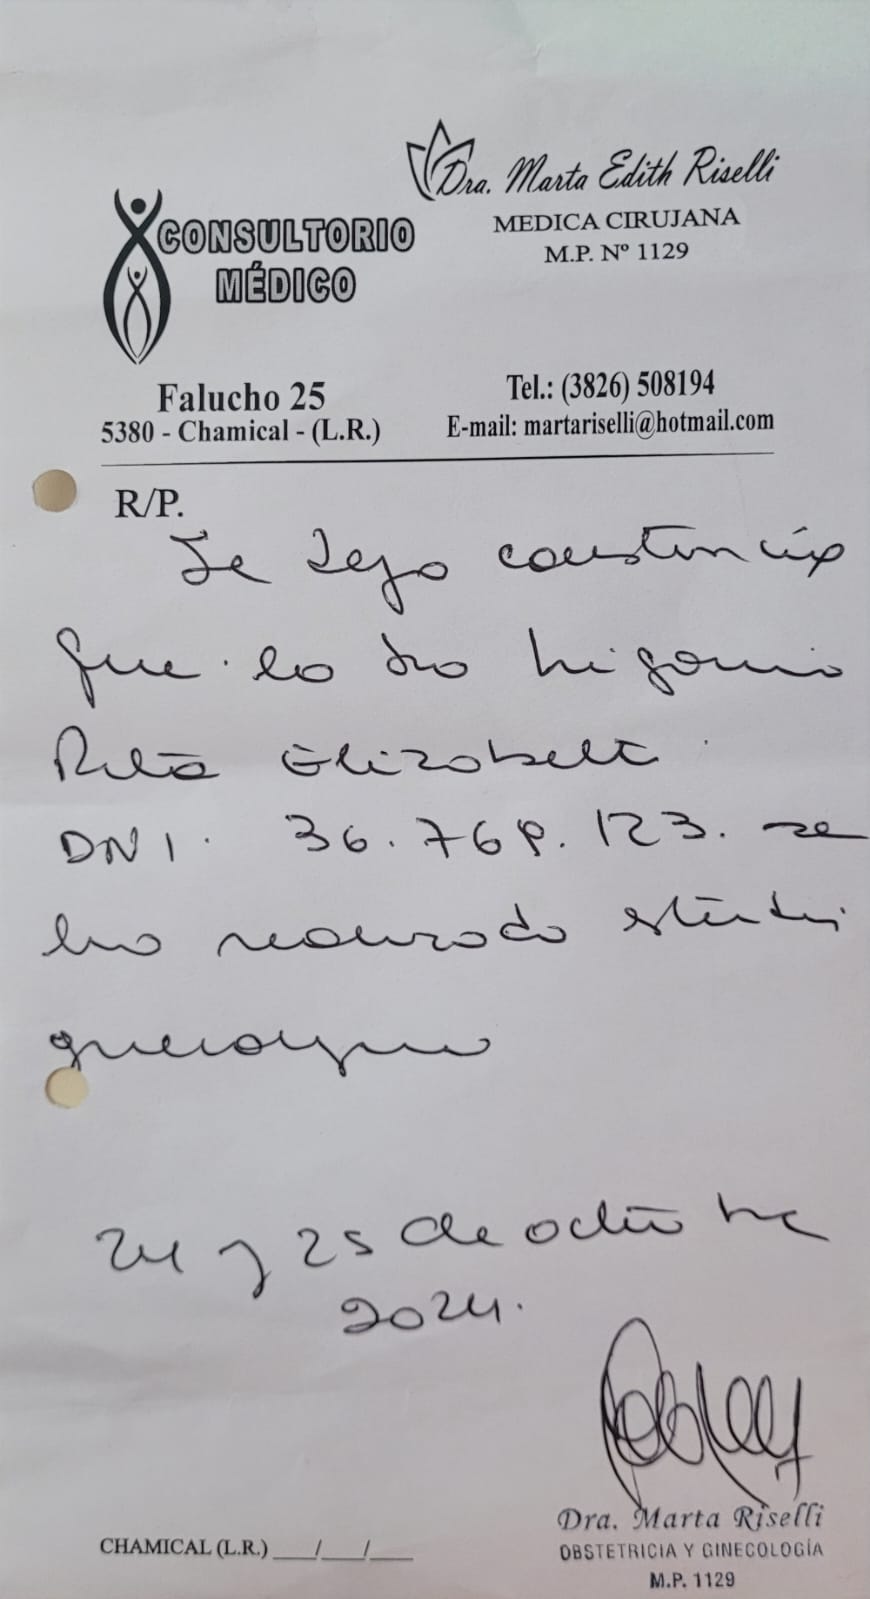 Dra. Marta Edith Riselli
MEDICA CIRUJANA
M.P. Nº 1129
CONSULTORIO
MÉDICO
Falucho 25
5380 - Chamical - (L.R.)
Tel.: (3826) 508194
E-mail: martariselli@hotmail.com
R/P.
Se deja constancia
que la
Rita Elizabeth
DNI. 36.768.123. se
ha realizado estudios
24 y 25 de octubre
2024.
Dra. Marta Riselli
OBSTETRICIA Y GINECOLOGÍA
M.P. 1129
CHAMICAL (L.R.) ___/___/___